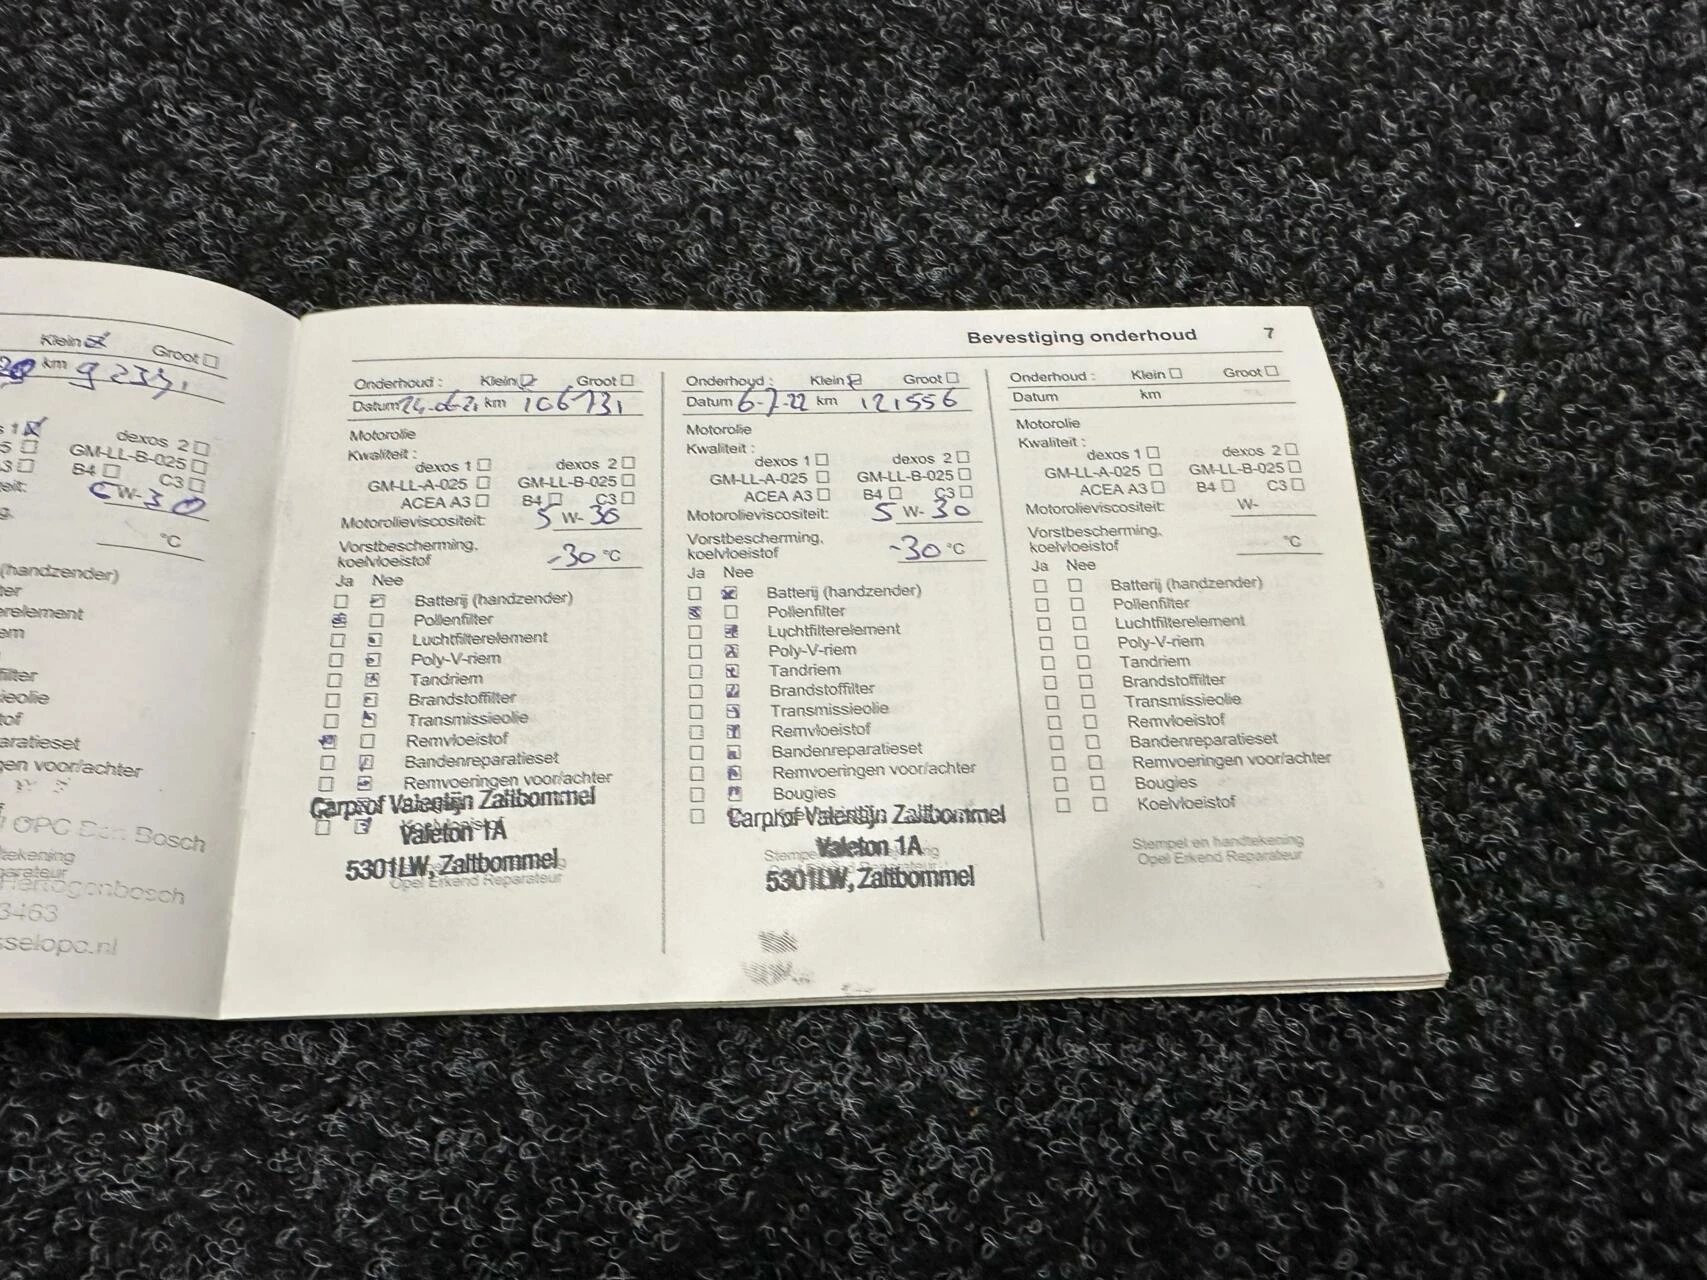 Klein Groot
km 9 233,
1
dexos 2
GM-LL-B-025
B4 C3
W-30
°C
(handzender)
voor/achter
OPC Den Bosch
Hertogenbosch
3463
selopc.nl
Bevestiging onderhoud 7
Onderhoud : Klein Groot
Datum km 106731
Motorolie
Kwaliteit :
dexos 1 dexos 2
GM-LL-A-025 GM-LL-B-025
ACEA A3 B4 C3
Motorolieviscositeit: 5 W-30
Vorstbescherming,
koelvloeistof -30 °C
Ja Nee
Batterij (handzender)
Pollenfilter
Luchtfilterelement
Poly-V-riem
Tandriem
Brandstoffilter
Transmissieolie
Remvloeistof
Bandenreparatieset
Remvoeringen voor/achter
Carprof Valentijn Zaltbommel
Valeton 1A
5301LW, Zaltbommel
Opel Erkend Reparateur
Onderhoud : Klein Groot
Datum 6-7-22 km 121556
Motorolie
Kwaliteit :
dexos 1 dexos 2
GM-LL-A-025 GM-LL-B-025
ACEA A3 B4 C3
Motorolieviscositeit: 5 W-30
Vorstbescherming,
koelvloeistof -30 °C
Ja Nee
Batterij (handzender)
Pollenfilter
Luchtfilterelement
Poly-V-riem
Tandriem
Brandstoffilter
Transmissieolie
Remvloeistof
Bandenreparatieset
Remvoeringen voor/achter
Bougies
Carprof Valentijn Zaltbommel
Valeton 1A
5301LW, Zaltbommel
Onderhoud : Klein Groot
Datum km
Motorolie
Kwaliteit :
dexos 1 dexos 2
GM-LL-A-025 GM-LL-B-025
ACEA A3 B4 C3
Motorolieviscositeit: W-
Vorstbescherming,
koelvloeistof °C
Ja Nee
Batterij (handzender)
Pollenfilter
Luchtfilterelement
Poly-V-riem
Tandriem
Brandstoffilter
Transmissieolie
Remvloeistof
Bandenreparatieset
Remvoeringen voor/achter
Bougies
Koelvloeistof
Stempel en handtekening
Opel Erkend Reparateur